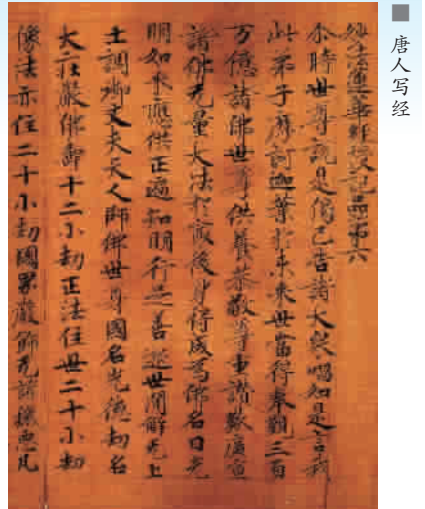 唐人写经
妙法蓮華經授記品第六
尒時世尊說是偈已告諸大衆唱如是言我
此弟子摩訶迦葉於未來世當得奉覲三百
万億諸佛世尊供養恭敬尊重讚歎廣宣
諸佛无量大法於最後身得成為佛名曰光
明如來應供正遍知明行足善逝世間解无上
士調御丈夫天人師佛世尊國名光德劫名
大莊嚴佛壽十二小劫正法住世二十小劫
像法亦住二十小劫國界嚴飾无諸穢惡瓦